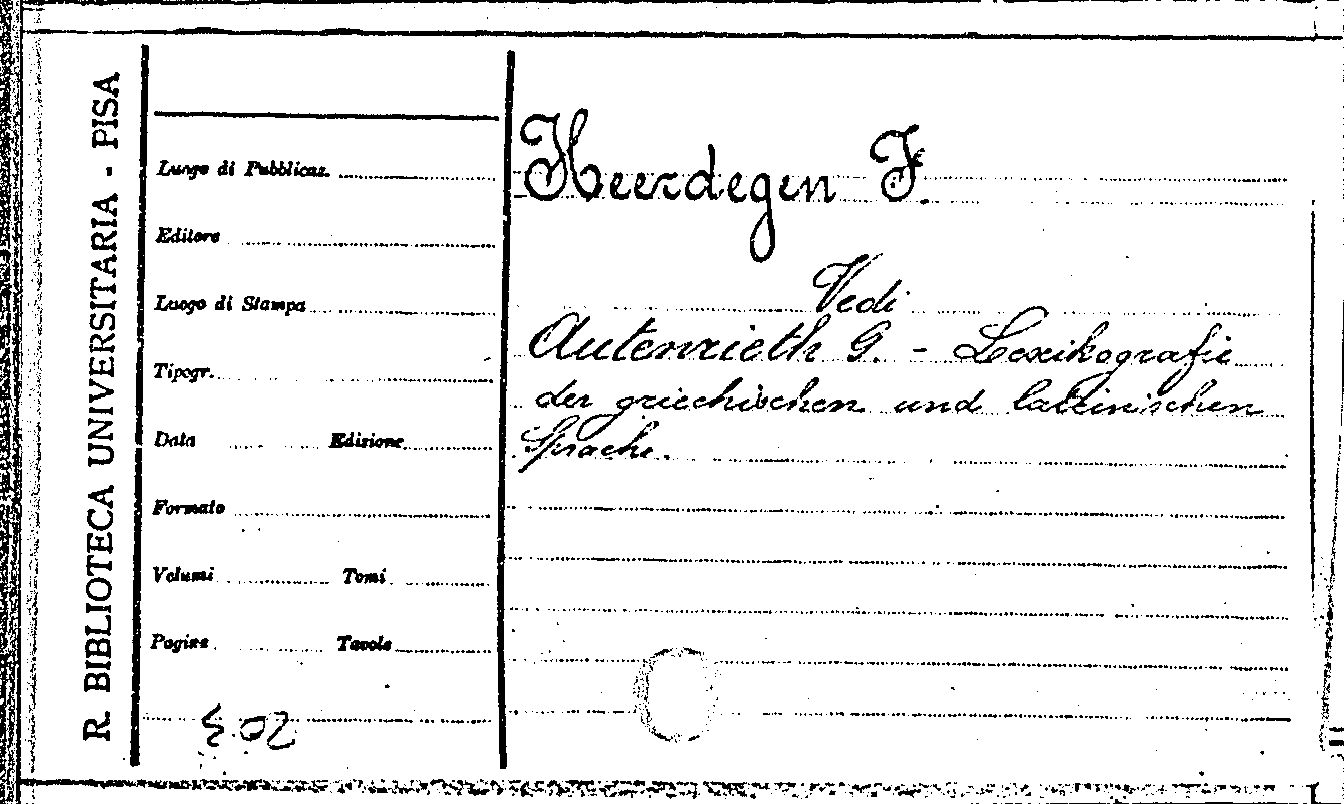 R. BIBLIOTECA UNIVERSITARIA - PISA
Luogo di Pubblicaz.
Editore
Luogo di Stampa
Tipogr.
Data Edizione
Formato
Volumi Tomi
Pagine Tavole
Heerdegen F.
Vedi
Autenrieth G. - Lexikografie
der griechischen und lateinischen
Sprache.